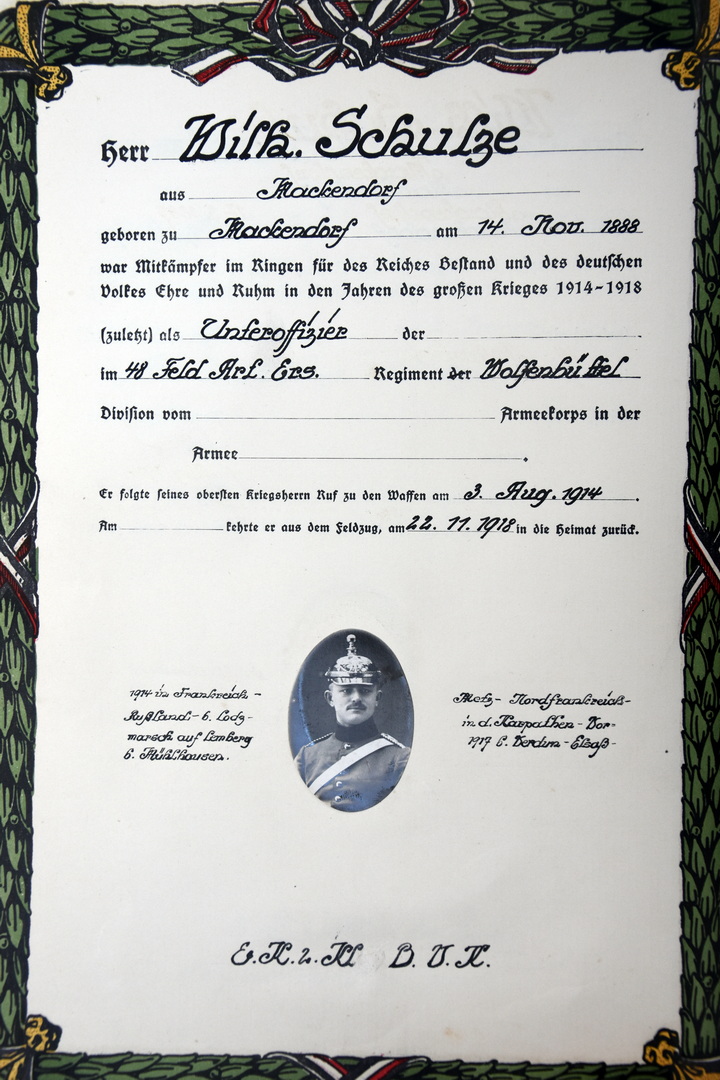 Herr Wilh. Schulze
aus Mackendorf
geboren zu Mackendorf am 14. Nov. 1888
war Mitkämpfer im Ringen für des Reiches Bestand und des deutschen
Volkes Ehre und Ruhm in den Jahren des großen Krieges 1914-1918
(zuletzt) als Unteroffizier der
im 48 Feld Art. Ers. Regiment der Wolfenbüttel
Division vom Armeekorps in der
Armee .
Er folgte seines obersten Kriegsherrn Ruf zu den Waffen am 3. Aug. 1914 .
Am kehrte er aus dem Feldzug, am 22. 11. 1918 in die Heimat zurück.
1914 in Frankreich -
Rußland - b. Lodz -
marsch auf Lemberg
b. Mühlhausen.
Metz - Nordfrankreich -
in d. Karpathen - Vor-
1917 b. Verdun - Elsaß -
E.K.2.Kl B.V.K.